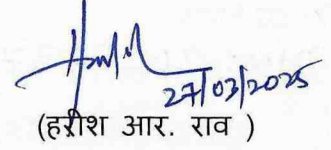 27/03/2025
(हरीश आर. राव )